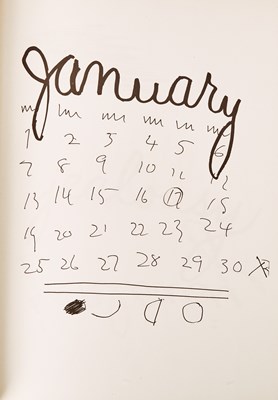 January
1 2 3 4 5 6
7 8 9 10 11 12
13 14 15 16 17 18
19 20 21 22 23 24
25 26 27 28 29 30